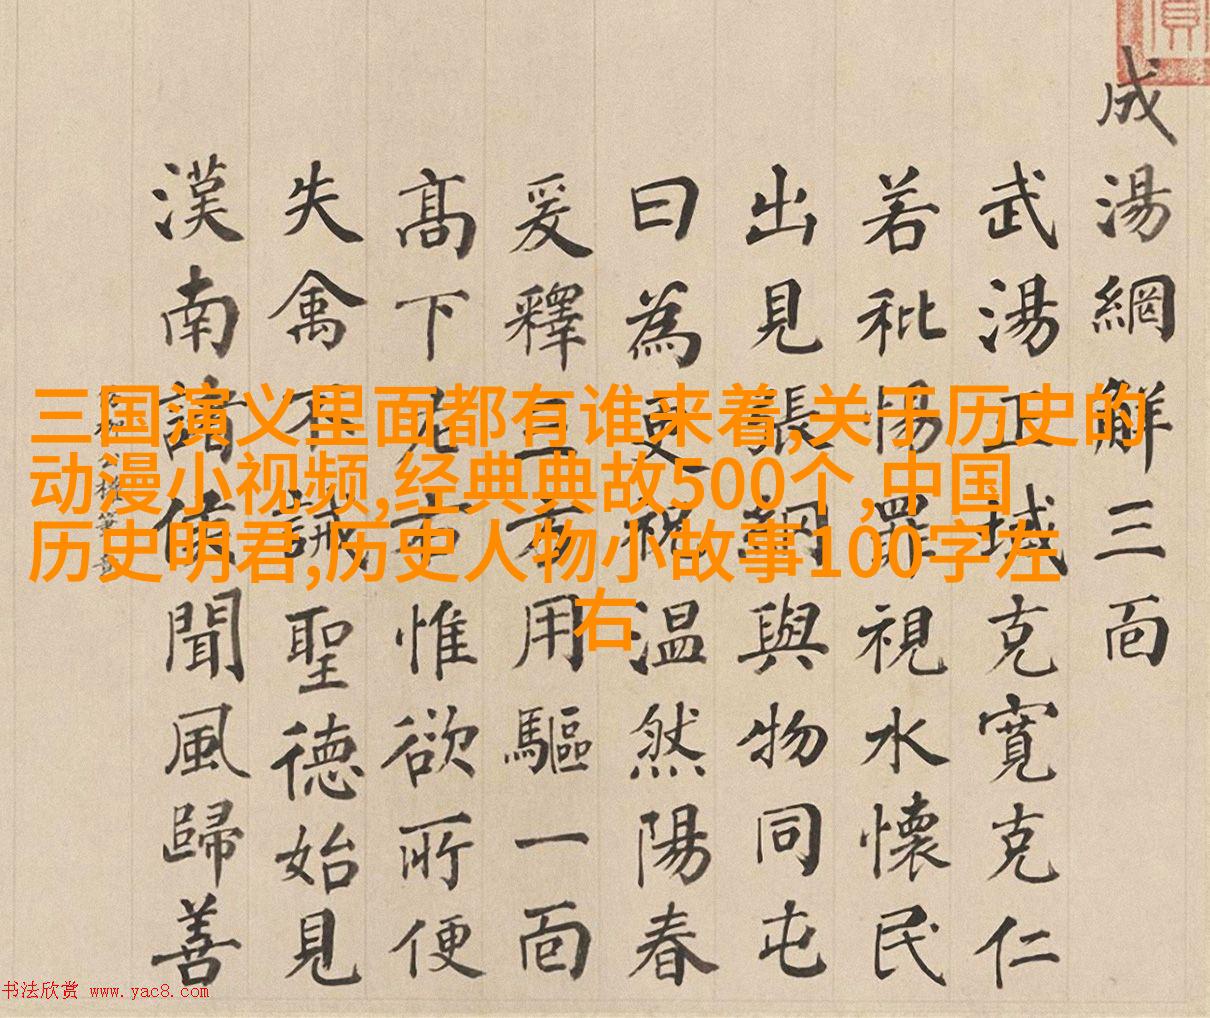 成湯網解三面
武湯正域克寬克仁
若秕罪視水懷民
出見張網與物同屯
曰為更祝温然陽春
爰釋三方用驅一面
高下惟欲所便
失禽不誡聖德始見
漢南諸侯聞風歸善
三国演义里面都有谁来着,关于历史的
动漫小视频,经典典故500个,中国
历史明君,历史人物小故事100字左
右
书法欣赏 www.yac8.com